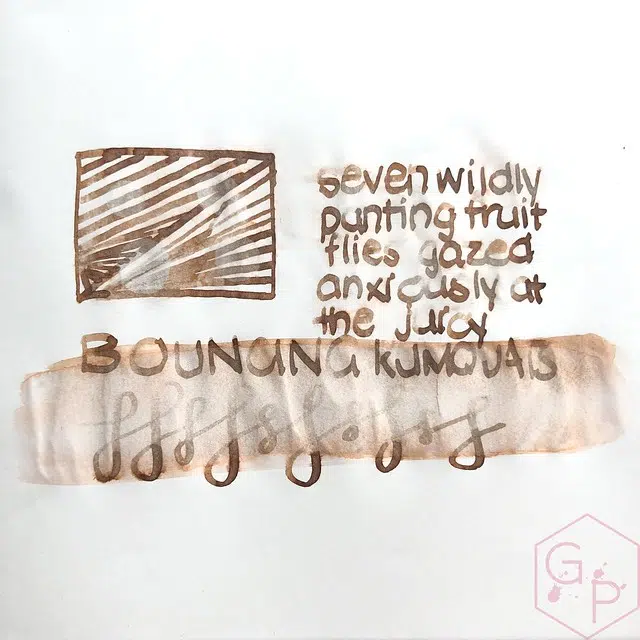 seven wildly
panting fruit
flies gazed
anxiously at
the juicy
BOUNCING KUMQUATS
GP